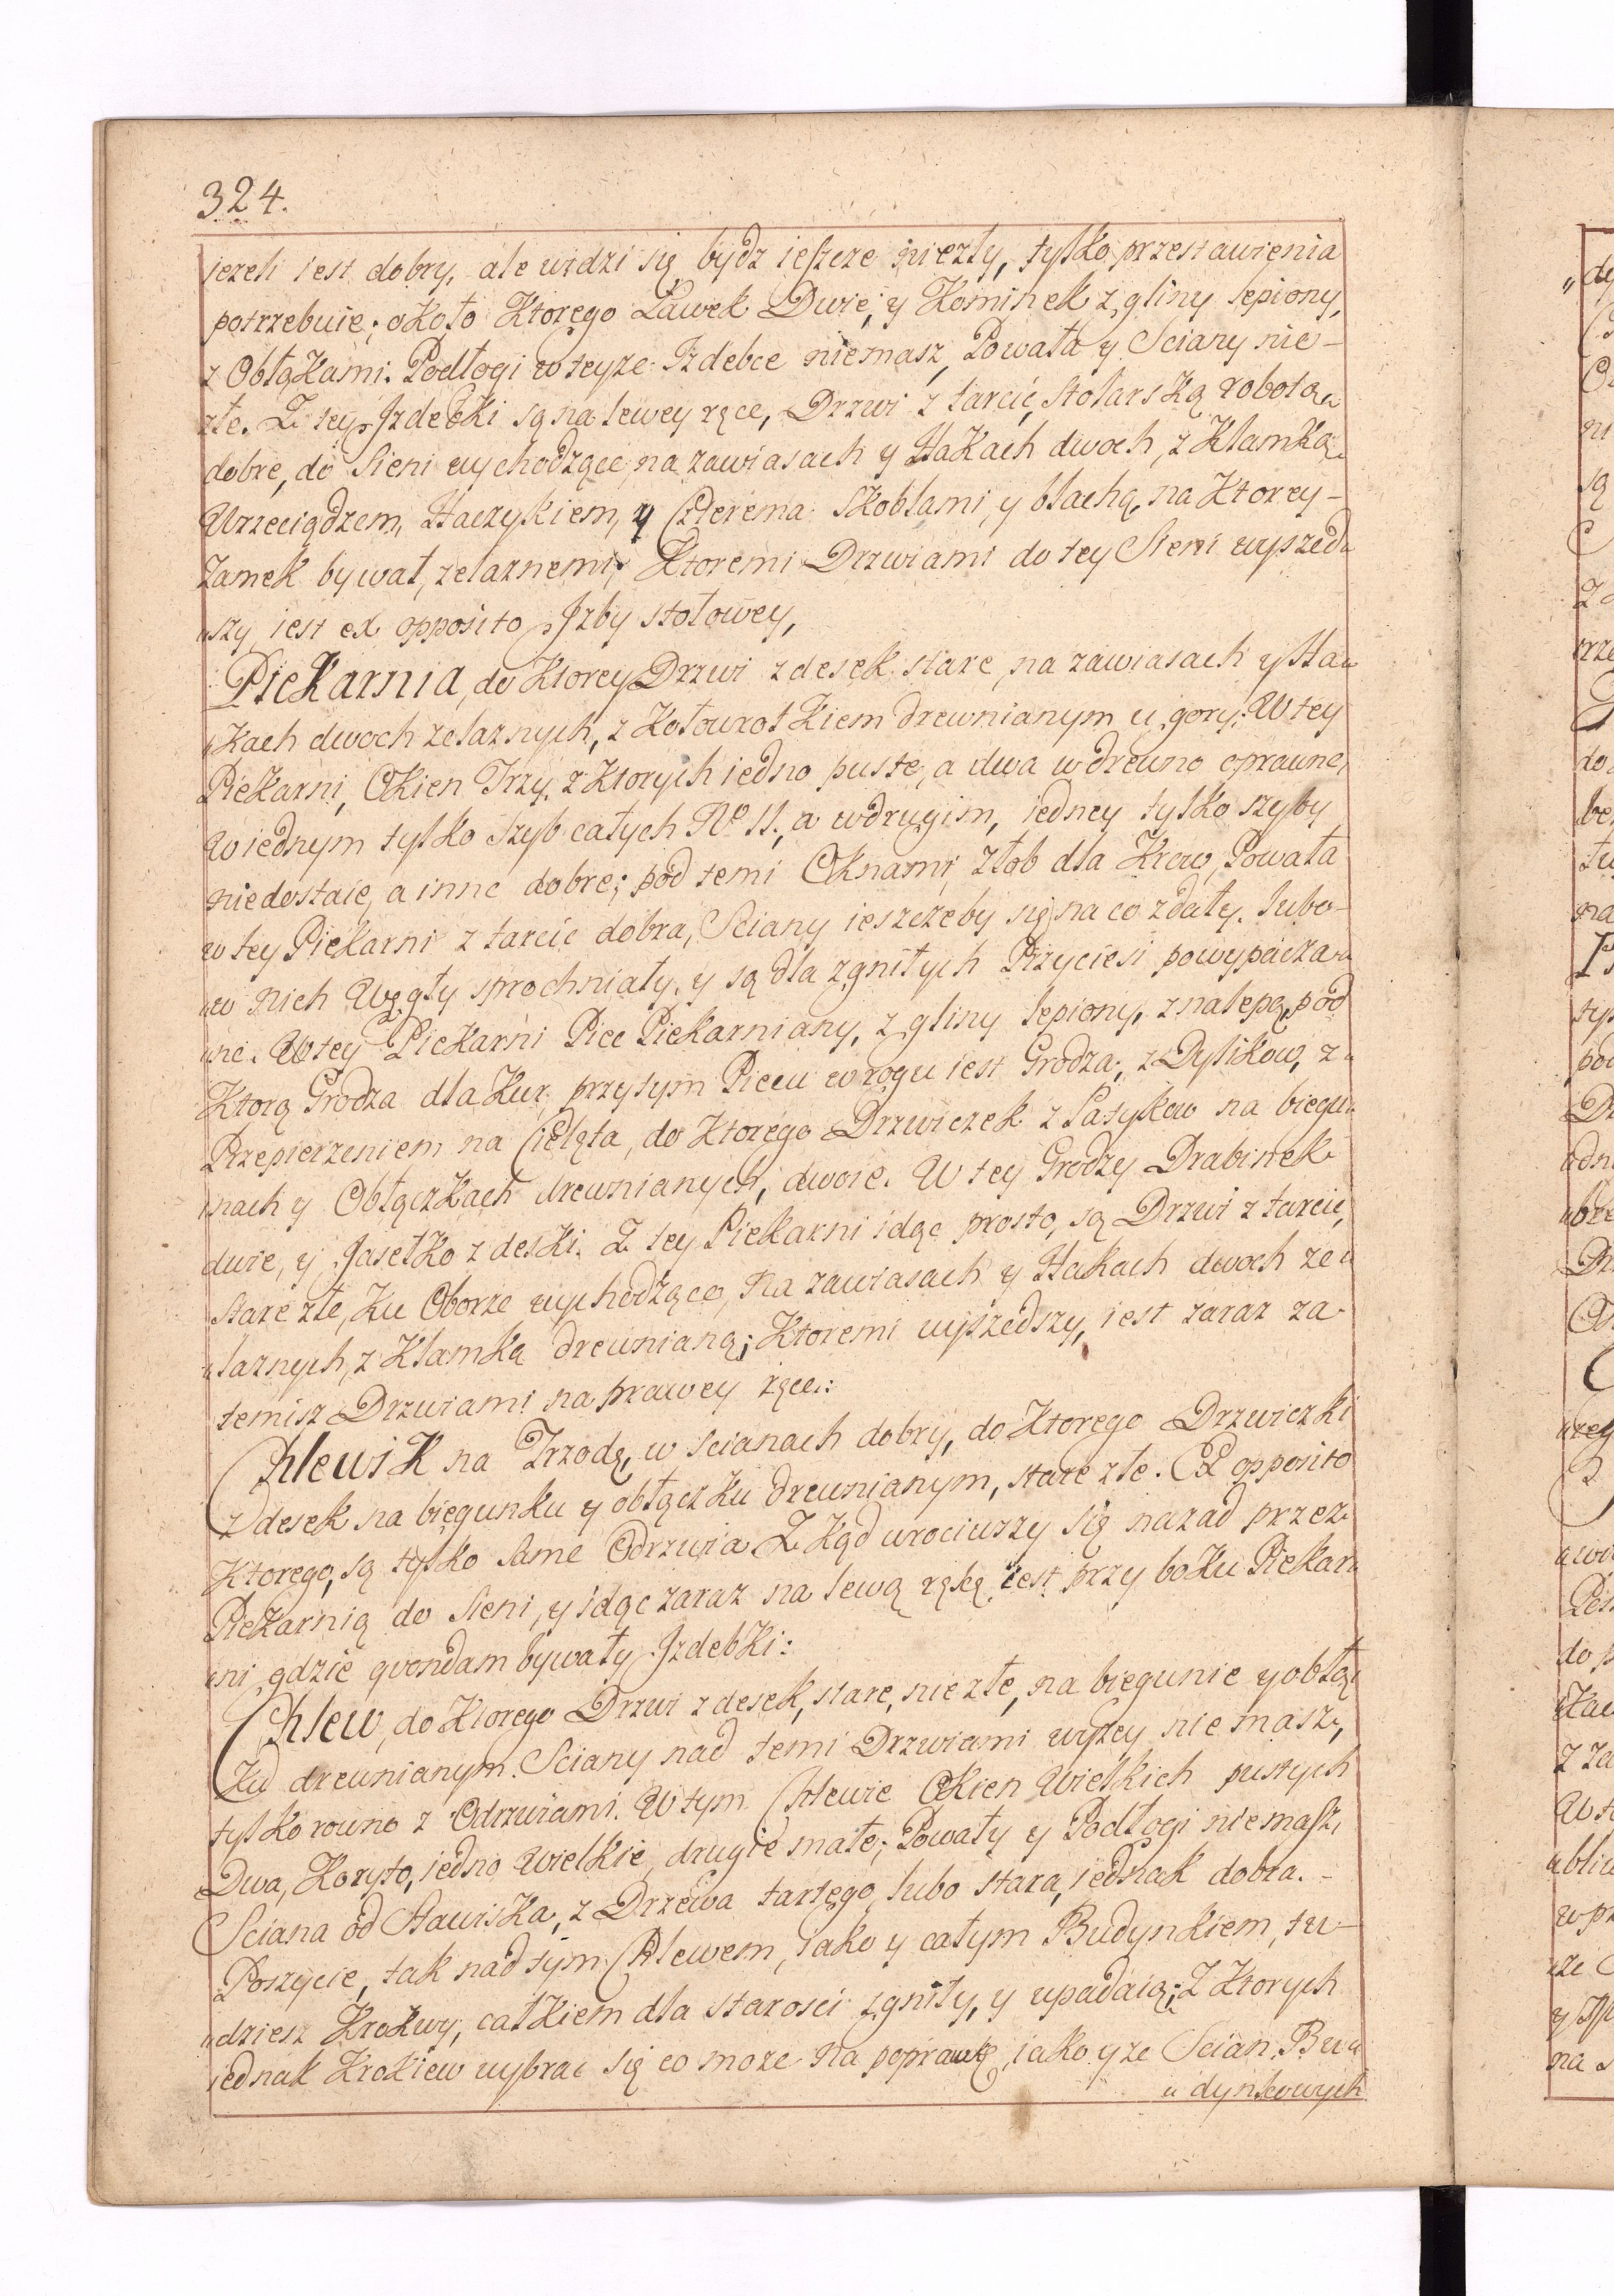 324.
jezeli iest dobry, ale widzi się bydz ieszcze niezły, tylko przestawienia
potrzebuie; około Ktorego Ławek Dwie, y Kominek z gliny lepiony,
z Obłąkami. Podłogi w teyze Izdebce niemasz, Powała y Sciany nie-
złe. Z tey Izdebki są na lewey ręce, Drzwi z tarcic, stolarską robotą„
dobre, do Sieni wychodzące, na zawiasach y Hakach dwoch, z Klamką„
Wrzeciądzem, Haczykiem, y Czterema Skoblami, y blachą, na Ktorey-
Zamek bywał, zelaznemi; Ktoremi Drzwiami do tey Sieni wyszed„
„szy, iest ex opposito Izby stołowey,
Piekarnia, do Ktorey Drzwi z desek stare, na zawiasach y Ha„
„Kach dwoch zelaznych, z Kołowrotkiem drewnianym u gory: W tey
Piekarni, Okien Trzy, z Ktorych iedno puste, a dwa w drewno oprawne,
W iednym tylko Szyb całych No 11, a w drugim, iedney tylko szyby
niedostaie, a inne dobre; pod temi Oknami, Złob dla Krow, Powała
w tey Piekarni z tarcic dobra, Sciany ieszczeby się na co zdały. lubo-
„w nich Węgły sprochniały, y są dla zgniłych Przyciesi powypacza„
„ne. W tey Piekarni Piec Piekarniany, z gliny lepiony, z nalepą, pod
Ktorą Grodza dla Kur, przy tym Piecu w rogu iest Grodza, z Dylikow, z„
Przepierzeniem na Cielęta, do Ktorego Drzwiczek z Patykow na biegu„
„nach y Obłączkach drewnianych, dwoie. W tey Grodzy Drabinek
dwie, y Jasełko z deski. Z tey Piekarni idąc prosto, są Drzwi z tarcic,
stare złe, Ku Oborze wychodzące, na zawiasach y Hakach dwoch ze„
„laznych, z Klamką drewnianą; Ktoremi wyszedszy, iest zaraz za
temisz Drzwiami na prawey ręce:
Chlewik na Trzodę, w scianach dobry, do Ktorego Drzwiczki
z desek na biegunku y obłączku drewnianym, stare złe. Ex opposito
Ktorego, są tylko same Odrzwia. Z Kąd wrociwszy się nazad przez
Piekarnią do Sieni, y idąc zaraz na lewą rękę, iest przy boku Piekar„
„ni, gdzie qvondam bywały Izdebki:
Chlew, do Ktorego Drzwi z desek, stare, nie złe, na biegunie y obłą„
Ku drewnianym. Sciany nad temi Drzwiami wyzey nie masz,
tylko rowno z Odrzwiami. W tym Chlewie Okien Wielkich pustych
Dwa, Koryto, iedno Wielkie, drugie małe; Powały y Podłogi niemasz,
Sciana od Stawiska, z Drzewa tartego, lubo stara, iednak dobra.-
Poszycie, tak nad tym Chlewem, iako y całym Budynkiem, tu-
„dziesz Krokwy, całkiem dla starosci zgniły, y upadaią; Z Ktorych
iednak Krokiew wybrac się co moze na poprawkę, iako y ze Scian Bu„
„dynkowych